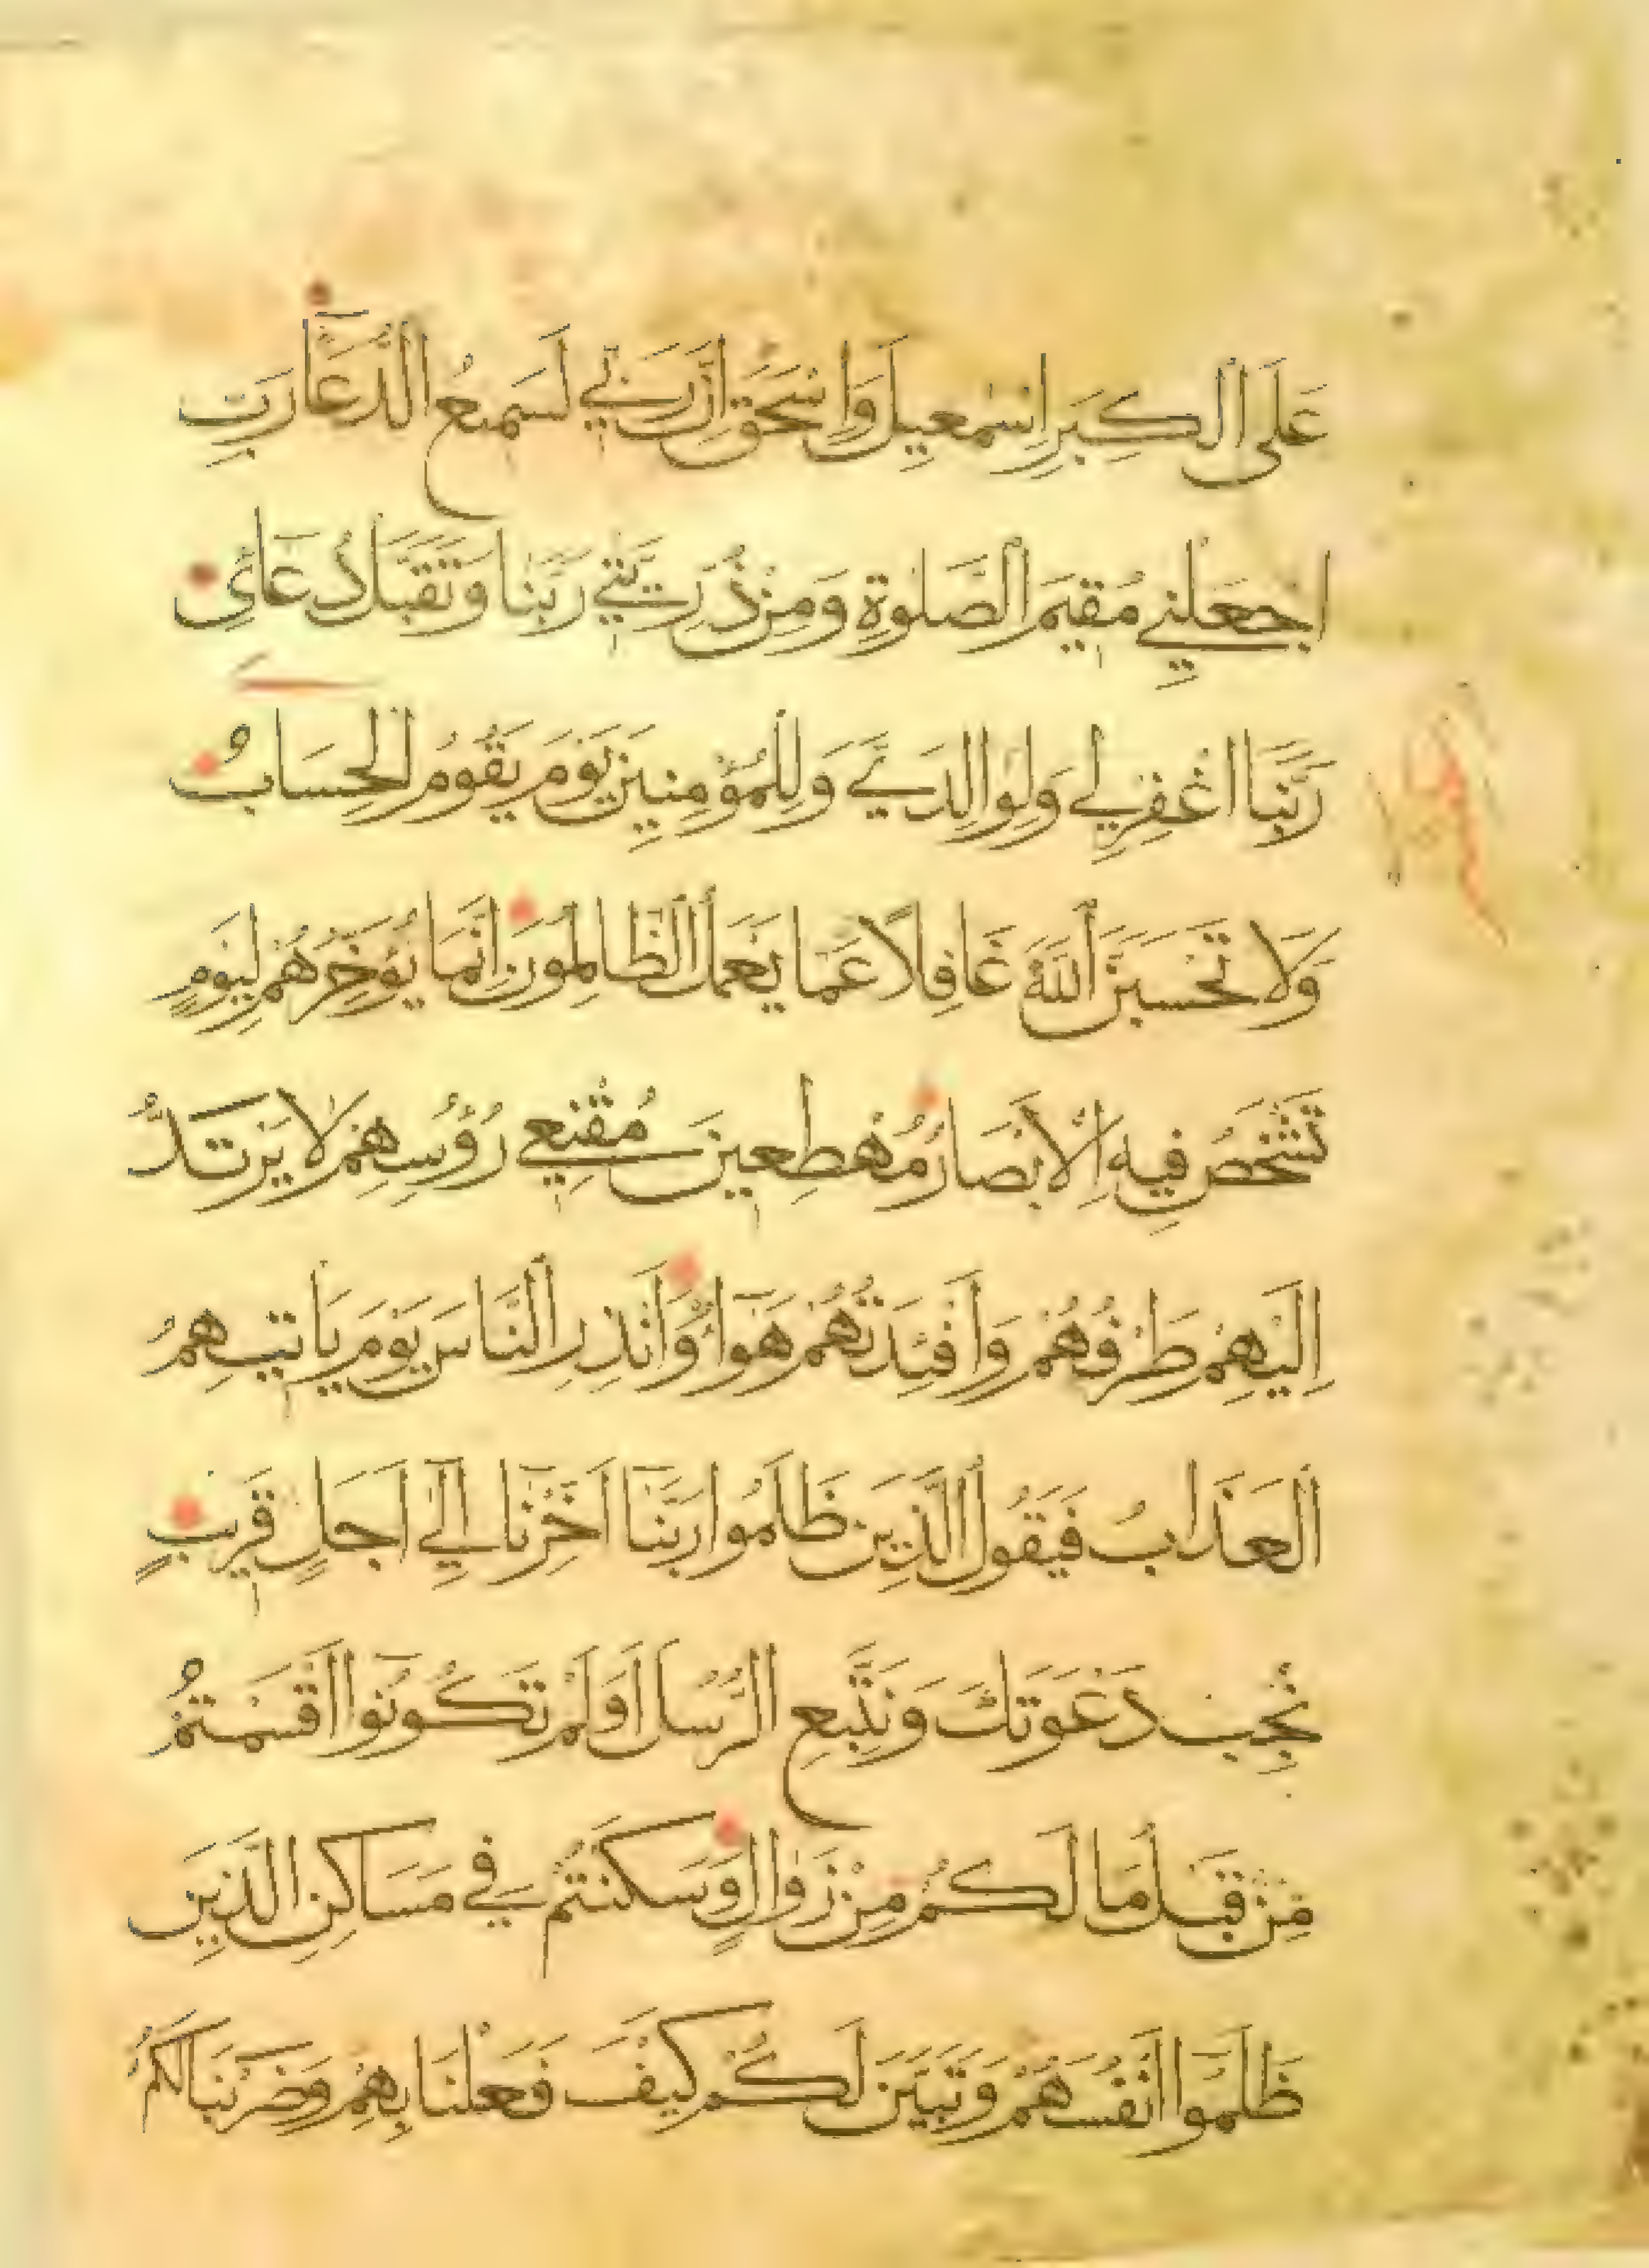 عَلَى الْكِبَرِ إِسْمٰعِيلَ وَإِسْحٰقَ إِنَّ رَبِّي لَسَمِيعُ الدُّعَآءِ رَبِّ
اجْعَلْنِي مُقِيمَ الصَّلٰوةِ وَمِنْ ذُرِّيَّتِي رَبَّنَا وَتَقَبَّلْ دُعَآئِ
رَبَّنَا اغْفِرْ لِي وَلِوَالِدَيَّ وَلِلْمُؤْمِنِينَ يَوْمَ يَقُومُ الْحِسَابُ
وَلَا تَحْسَبَنَّ اللّٰهَ غَافِلًا عَمَّا يَعْمَلُ الظَّالِمُونَ إِنَّمَا يُؤَخِّرُهُمْ لِيَوْمٍ
تَشْخَصُ فِيهِ الْأَبْصَارُ مُهْطِعِينَ مُقْنِعِي رُؤُسِهِمْ لَا يَرْتَدُّ
إِلَيْهِمْ طَرْفُهُمْ وَأَفْئِدَتُهُمْ هَوَآءٌ وَأَنْذِرِ النَّاسَ يَوْمَ يَأْتِيهِمُ
الْعَذَابُ فَيَقُولُ الَّذِينَ ظَلَمُوا رَبَّنَآ أَخِّرْنَآ إِلٰٓي أَجَلٍ قَرِيبٍ
نُجِبْ دَعْوَتَكَ وَنَتَّبِعِ الرُّسُلَ أَوَلَمْ تَكُونُوٓا أَقْسَمْتُمْ
مِنْ قَبْلُ مَا لَكُمْ مِنْ زَوَالٍ وَسَكَنْتُمْ فِي مَسَاكِنِ الَّذِينَ
ظَلَمُوٓا أَنْفُسَهُمْ وَتَبَيَّنَ لَكُمْ كَيْفَ فَعَلْنَا بِهِمْ وَضَرَبْنَا لَكُمُ